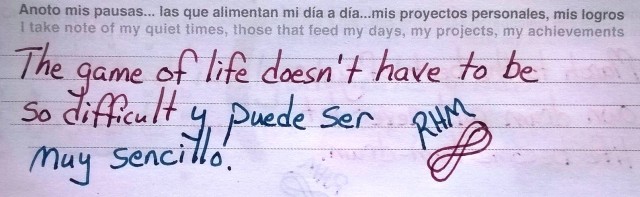 Anoto mis pausas... las que alimentan mi día a día...mis proyectos personales, mis logros
I take note of my quiet times, those that feed my days, my projects, my achievements
The game of life doesn't have to be
so difficult y puede ser
muy sencillo.
RHM